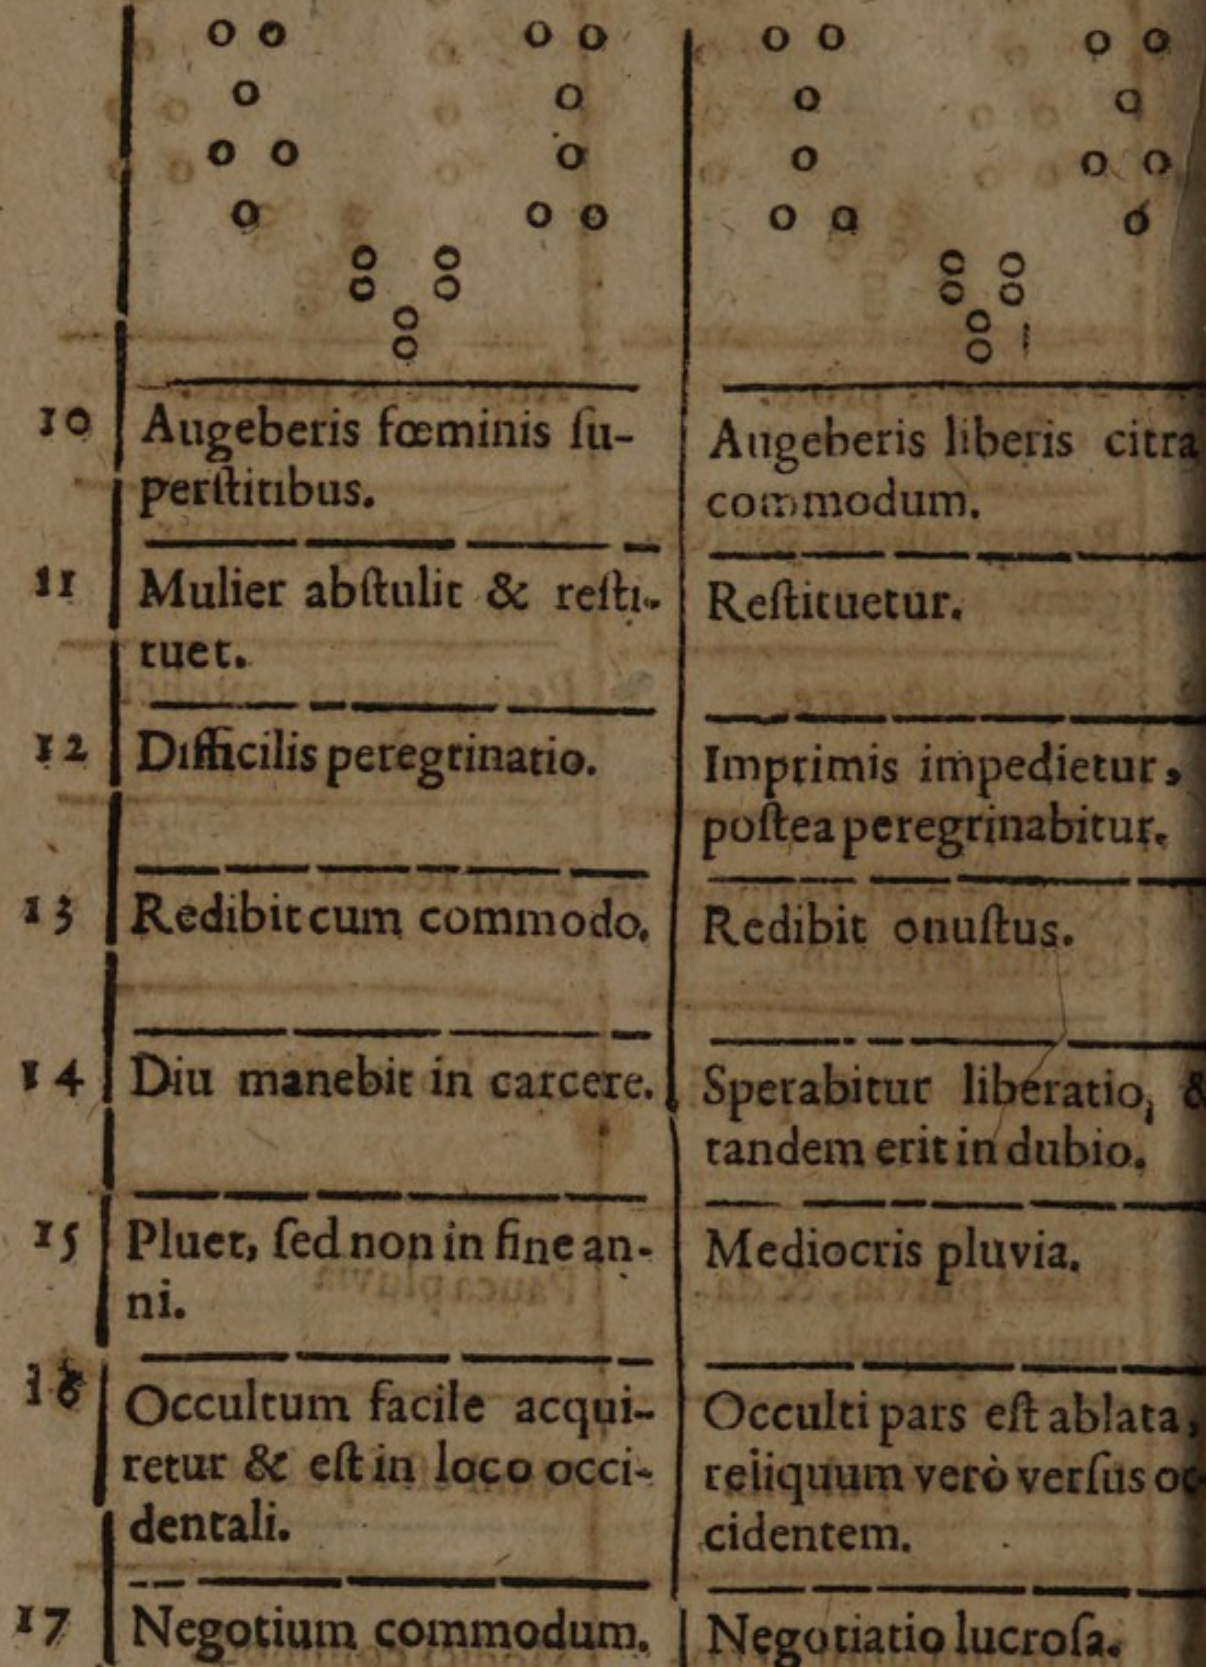 10
Augeberis fœminis ſu-
perſtitibus.
Augeberis liberis citra
commodum.
11
Mulier abſtulit & reſti-
tuet.
Reſtituetur.
12
Difficilis peregrinatio.
Imprimis impedietur,
poſtea peregrinabitur.
13
Redibit cum commodo.
Redibit onuſtus.
14
Diu manebit in carcere.
Sperabitur liberatio, &
tandem erit in dubio.
15
Pluet, ſed non in fine an-
ni.
Mediocris pluvia.
16
Occultum facile acqui-
retur & eſt in loco occi-
dentali.
Occulti pars eſt ablata,
reliquum verò verſus oc-
cidentem.
17
Negotium commodum.
Negotiatio lucroſa.